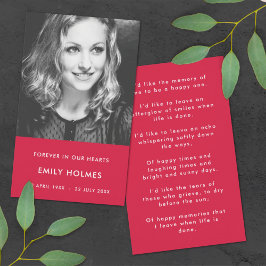 FOREVER IN OUR HEARTS
EMILY HOLMES
APRIL 19XX - 22 JULY 20XX
I'd like the memory of
me to be a happy one.
I'd like to leave on
afterglow of smiles when
life is done.
I'd like to leave an echo
whispering softly down
the ways,
Of happy times and
laughing times and
bright and sunny days.
I'd like the tears of
those who grieve, to dry
before the sun;
Of happy memories that
I leave when life is
done.